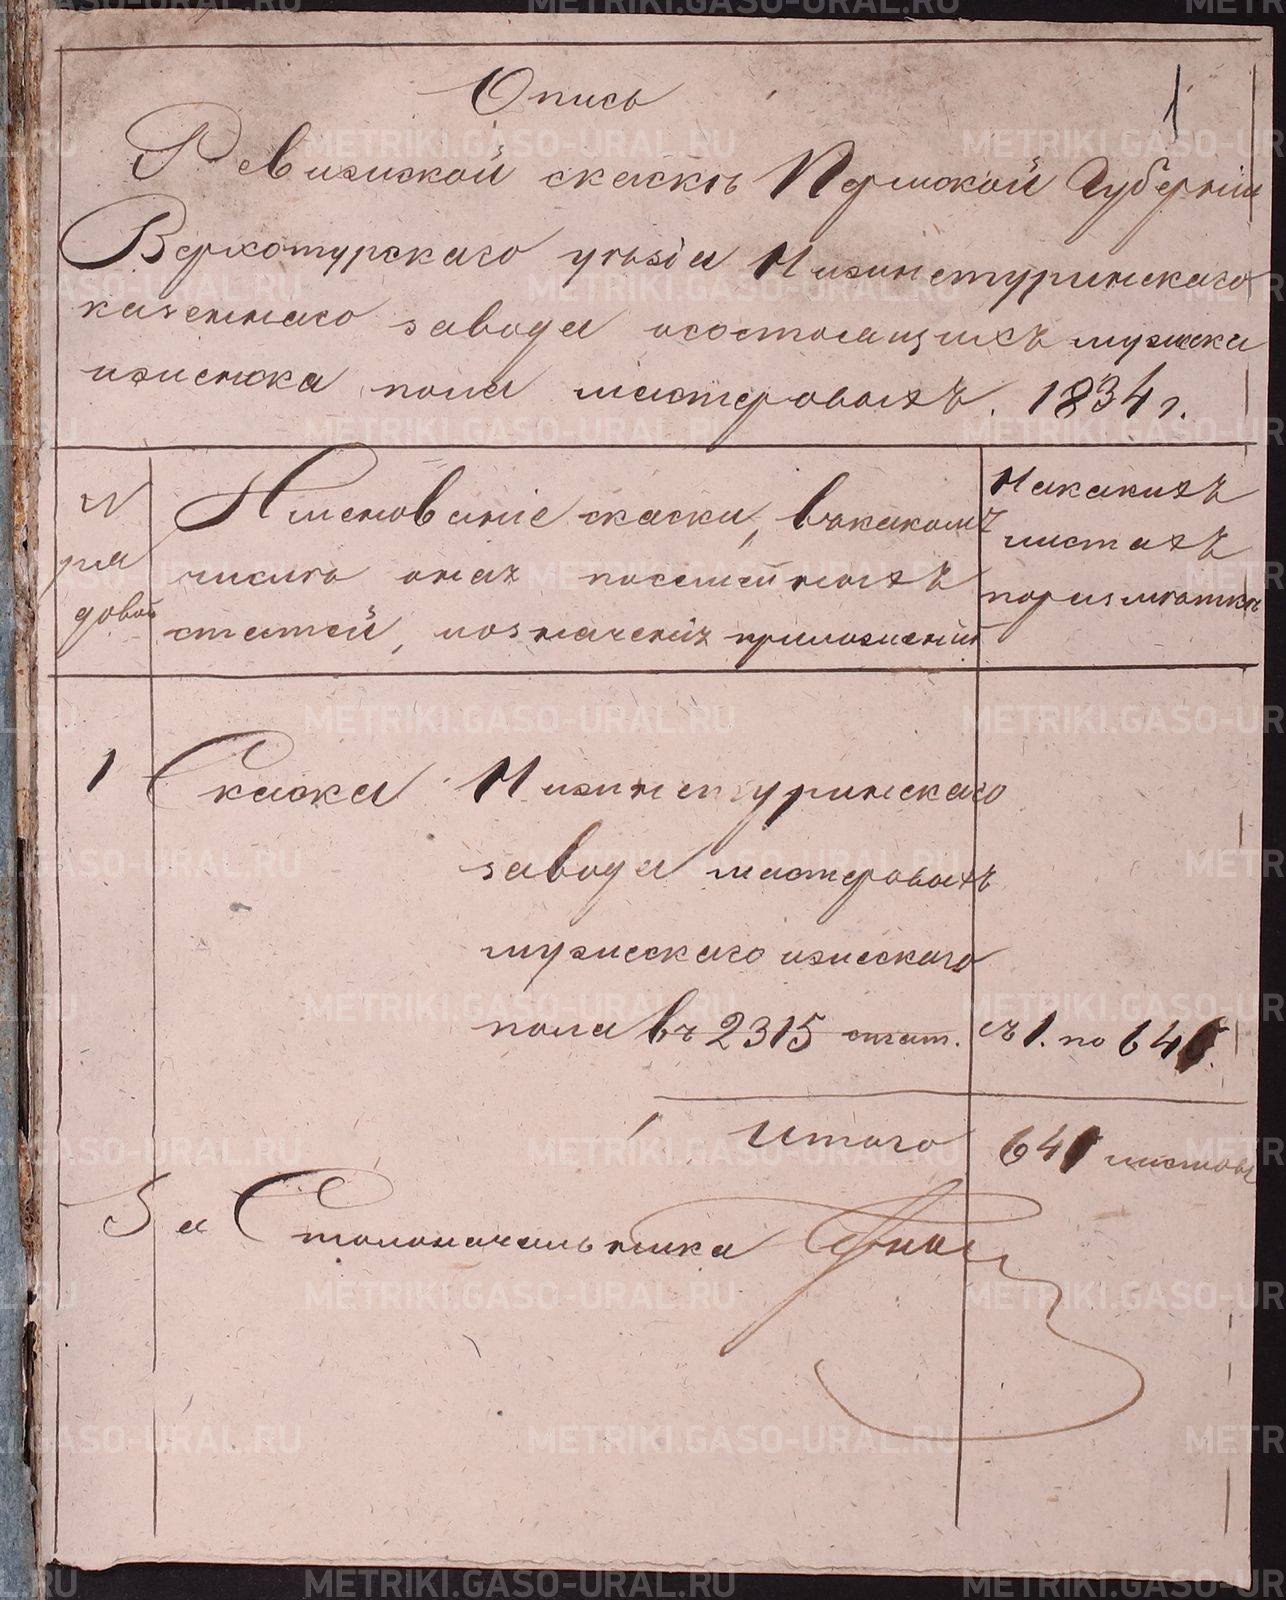 Опись
1
Ревизской скаскѣ Пермской Губерніи
Верхотурскаго уѣзда Нижнетуринскаго
казеннаго завода осостоящихъ мужска
иженска пола мастеровыхъ. 1834 г.
N
ря
довой
Именованіе скаски, въкаком
числѣ онах посемейныхъ
статей, иозначеніи приложений
Накакихъ
листахъ
поразмѣткѣ
1 Скаска Нижнетуринскаго
завода мастеровыхъ
мужескаго иженскаго
пола въ 2315 стат. съ 1. по 640.
Итого 640 листовъ
За Столоначальника
METRIKI.GASO-URAL.RU